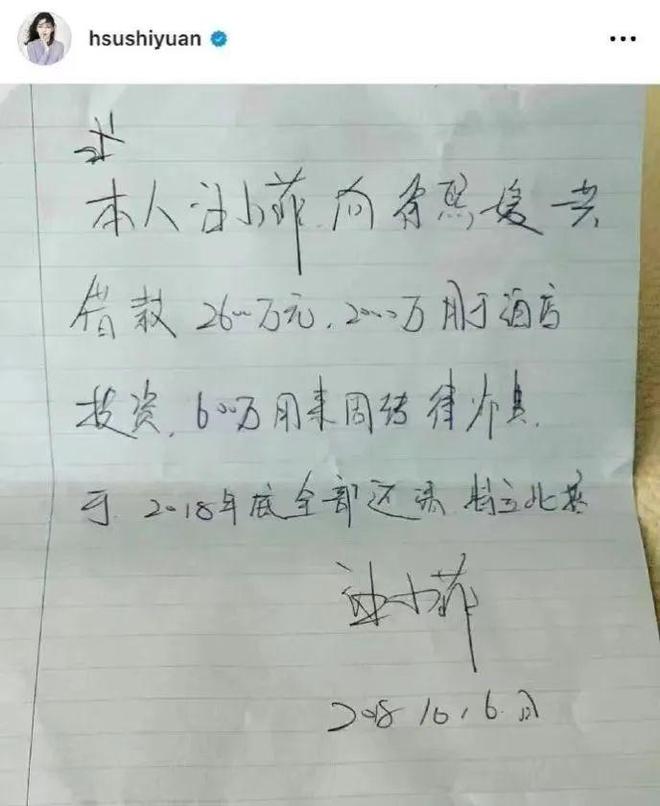 hsushiyuan
本人汪小菲向徐熙媛共
借款2600万元,2000万用于酒店
投资,600万用来周转律师费,
于2018年底全部还清 特立此
汪小菲
2018.10.6.日